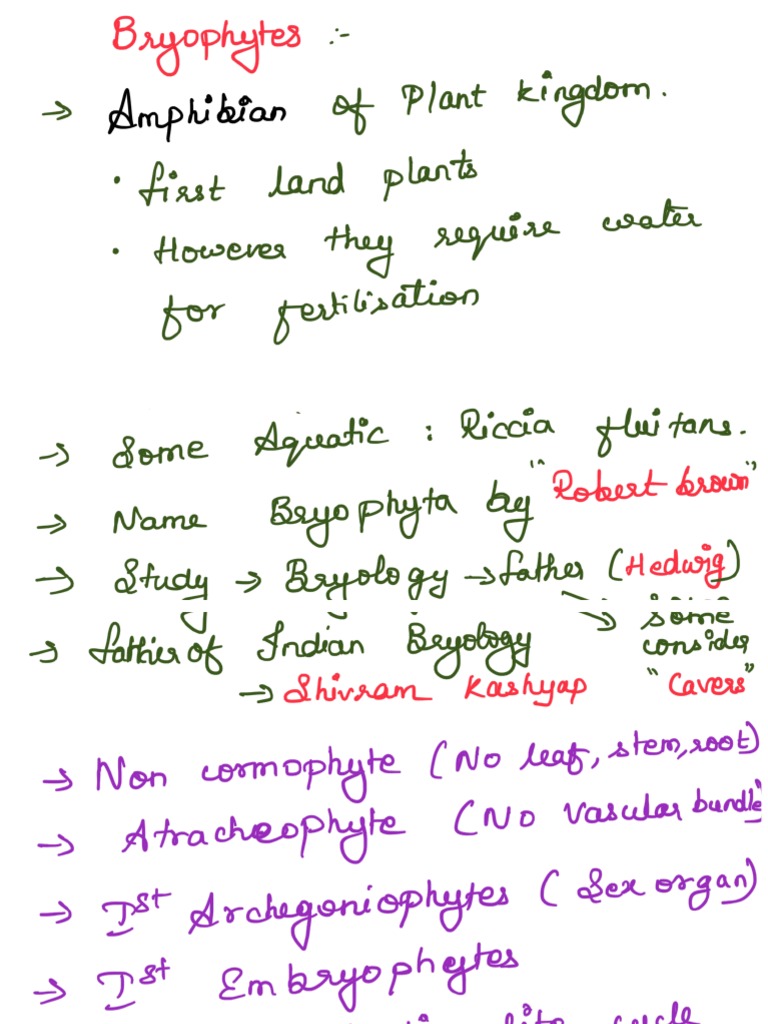 Bryophytes :-
→ Amphibian of Plant kingdom.
• first land plants
• However they require water
for fertilisation
→ Some Aquatic : Riccia fluitans.
→ Name Bryophyta by "Robert brown"
→ Study → Bryology → father (Hedwig)
→ father of Indian Bryology → some consider
→ Shivram Kashyap "Cavers"
→ Non cormophyte (No leaf, stem, root)
→ Atracheophyte (No Vascular bundle
→ Ist Archegoniophytes (Sex organ)
→ Ist Embryophytes
life cycle